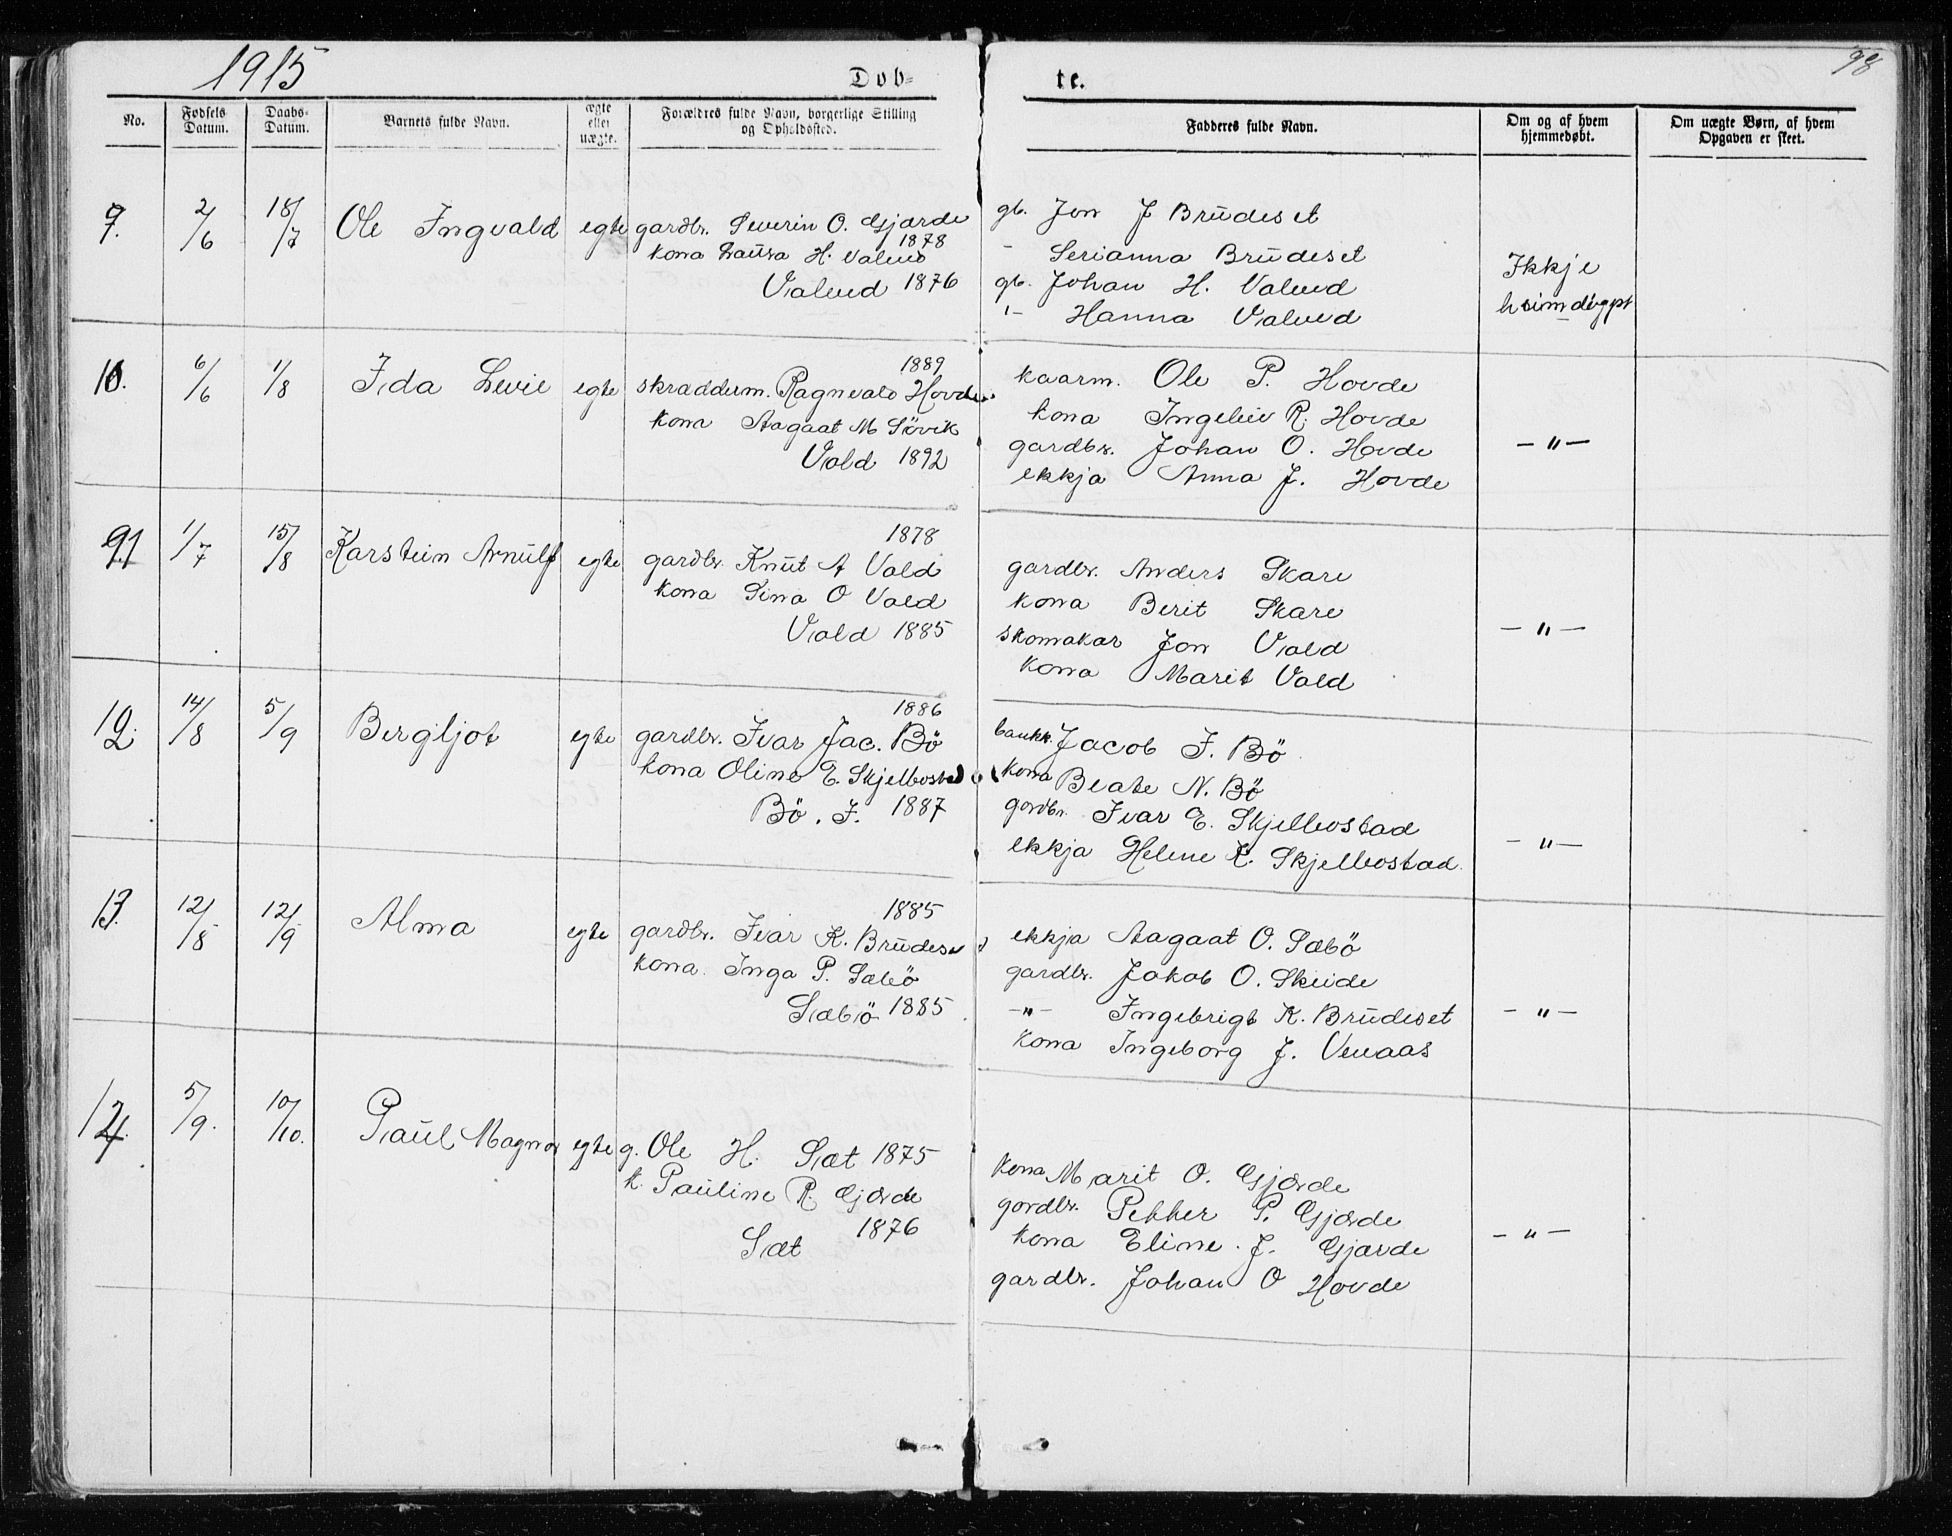 1915
98
Døb-
te.
No.
Fødsels Datum.
Daabs-Datum.
Barnets fulde Navn.
ægte eller uægte.
Forældres fulde Navn, borgerlige Stilling og Opholdssted.
Fadderes fulde Navn.
Om og af hvem hjemmedøbt.
Om uægte Børn, af hvem Opgaven er skeet.
9.
2/6
18/7
Ole Ingvald
egte
gardbr. Severin O. Gjærde
1878
kona Laura H. Valved
Valved 1876
gb. Jon J Brudeset
- Serianna Brudeset
gb. Johan H. Valved
"- Hanna Valved
Ikkje
heimdøypt
10.
6/6
1/8
Ida Levie
egte
1889
skræddum. Ragnvald Hovde
kona Aagaat M Søvik
Vold 1892
kaarm. Ole P. Hovde
kona Ingeleiv R. Hovde
gardbr. Johan O. Hovde
ekkja Anna J. Hovde
- " -
11
1/7
15/8
Karstein Arnulf
egte
1878
gardbr. Knut A Vold
kona Sina O Vold
Vold 1885
gardbr. Anders Skare
kona Berit Skare
skomakar Jon Vold
kona Marit Vold
- " -
12.
14/8
5/9
Bergljot
egte
1886
gardbr. Ivar Jac. Bø
kona Oline E. Skjelbostad
Bø. I. 1887
Jacob I. Bø
kona Beate N. Bø
gardbr. Ivar E. Skjelbostad
ekkja Helene K. Skjelbostad.
- " -
13.
12/8
12/9
Alma
egte
1885
gardbr. Ivar K. Brudeset
kona Inga P. Sæbø
Sæbø 1885
ekkja Aagaat O. Sæbø
gardbr. Jakob O. Skeide
- " - Ingebrigt K. Brudeset
kona Ingeborg J. Venaas
- " -
14.
5/9.
10/10.
Paul Magnar
egte
g. Ole H. Sæt 1875
k. Pauline R. Gjærde
1876
Sæt
kona Marit O. Gjærde
gardbr. Petter P. Gjærde
kona Eline J. Gjærde
gardbr. Johan O Hovde
- " -